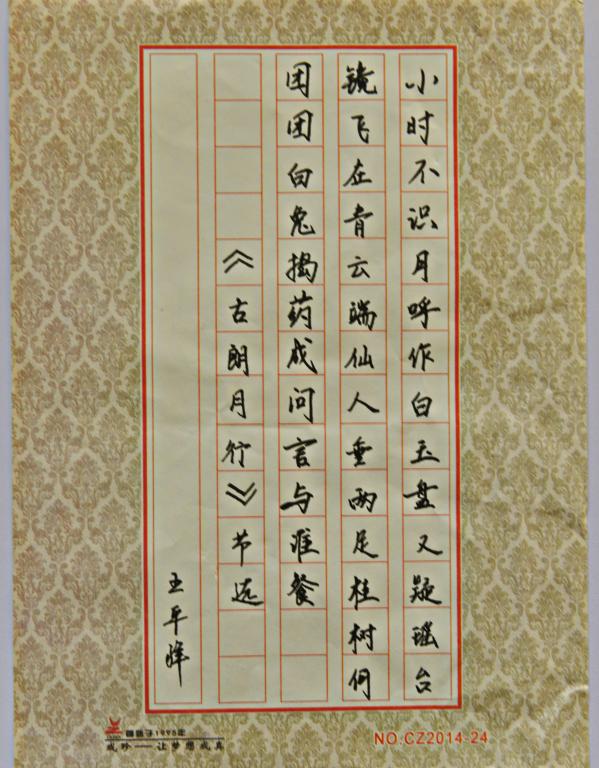 小时不识月呼作白玉盘又疑瑶台
镜飞在青云端仙人垂两足桂树何
团团白兔捣药成问言与谁餐
《古朗月行》节选
王平
1995年
让梦想成真
NO.CZ2014-24